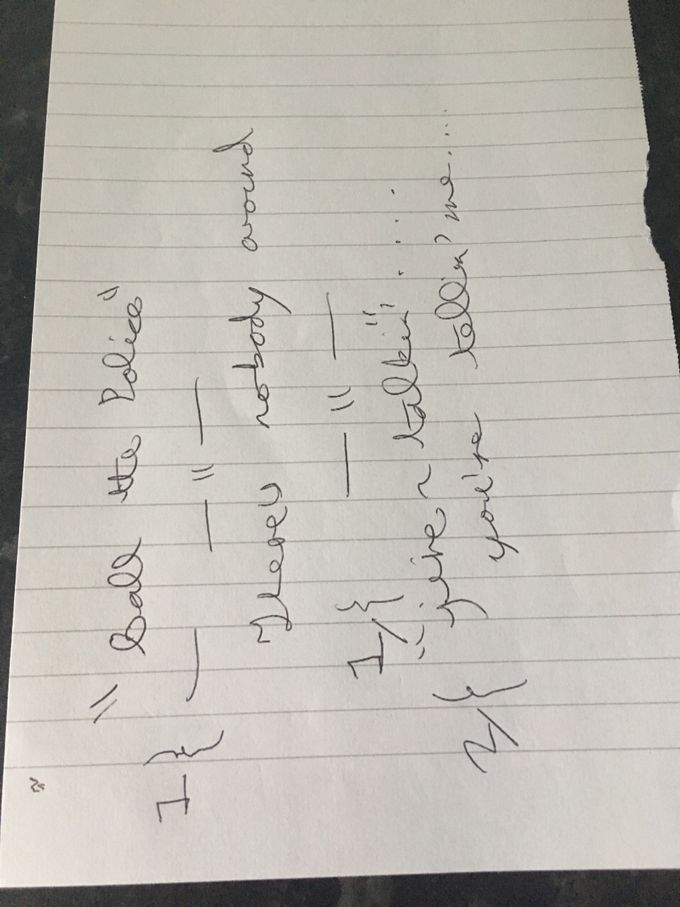 " Call the Police"
1 } — — " —
There's nobody around
— " —
1/ {
" you're talkin' " . . . .
2/ { you're tellin' me....